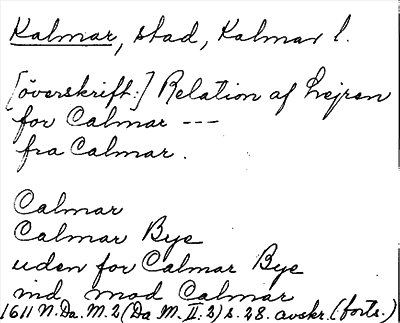 Kalmar, stad, Kalmar l.
[överskrift:] Relation af Lejren
for Calmar ---
fra Calmar.
Calmar
Calmar Bye
uden for Calmar Bye
ind mod Calmar
1611 N. Da. M. 2 (Da M. II: 2) s. 28. avskr. (forts.)